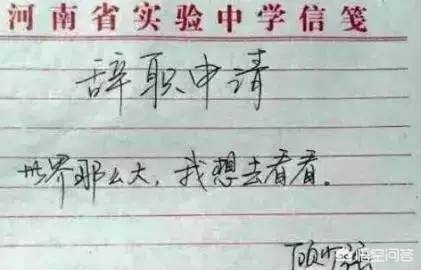 河南省实验中学信笺
辞职申请
世界那么大，我想去看看。
顾少强
悟空问答